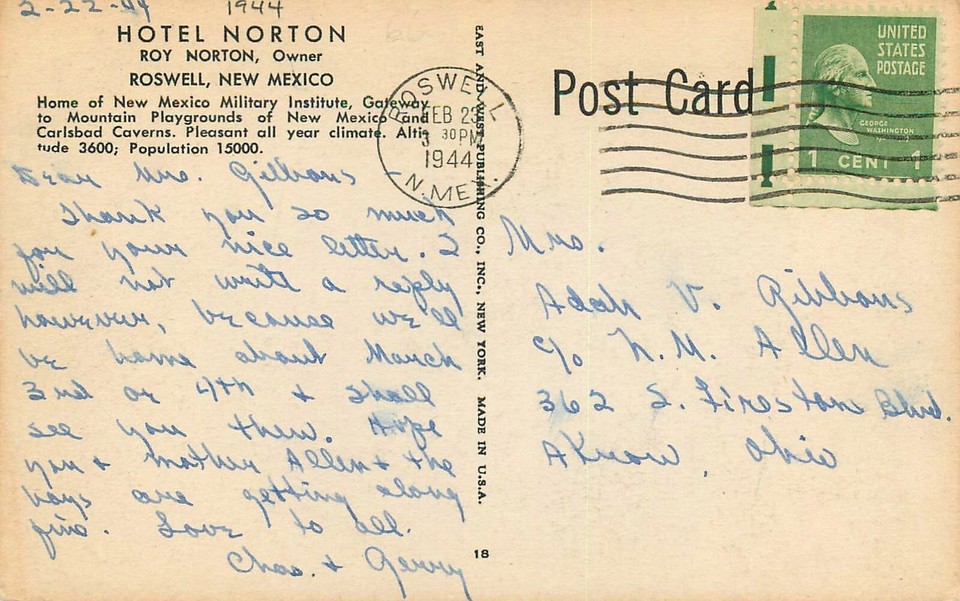 2-22-44 1944
HOTEL NORTON
ROY NORTON, Owner
ROSWELL, NEW MEXICO
Home of New Mexico Military Institute, Gateway
to Mountain Playgrounds of New Mexico and
Carlsbad Caverns. Pleasant all year climate. Alti-
tude 3600; Population 15000.
Dear Mrs. Gibbons -
Thank you so much
for your nice letter. I
will not write a reply
however, because we'll
be home about March
3rd or 4th & shall
see you then. Hope
you & Mother Allen & the
boys are getting along
fine. Love to all.
Chas. & Gerry
EAST AND WEST PUBLISHING CO., INC., NEW YORK. MADE IN U.S.A.
18
ROSWELL
FEB 23
3 30 PM
1944
N. MEX.
Post Card
UNITED
STATES
POSTAGE
GEORGE
WASHINGTON
1 CENT 1
Mrs.
Adah V. Gibbons
c/o N. M. Allen
362 S. Firestone Blvd.
Akron, Ohio